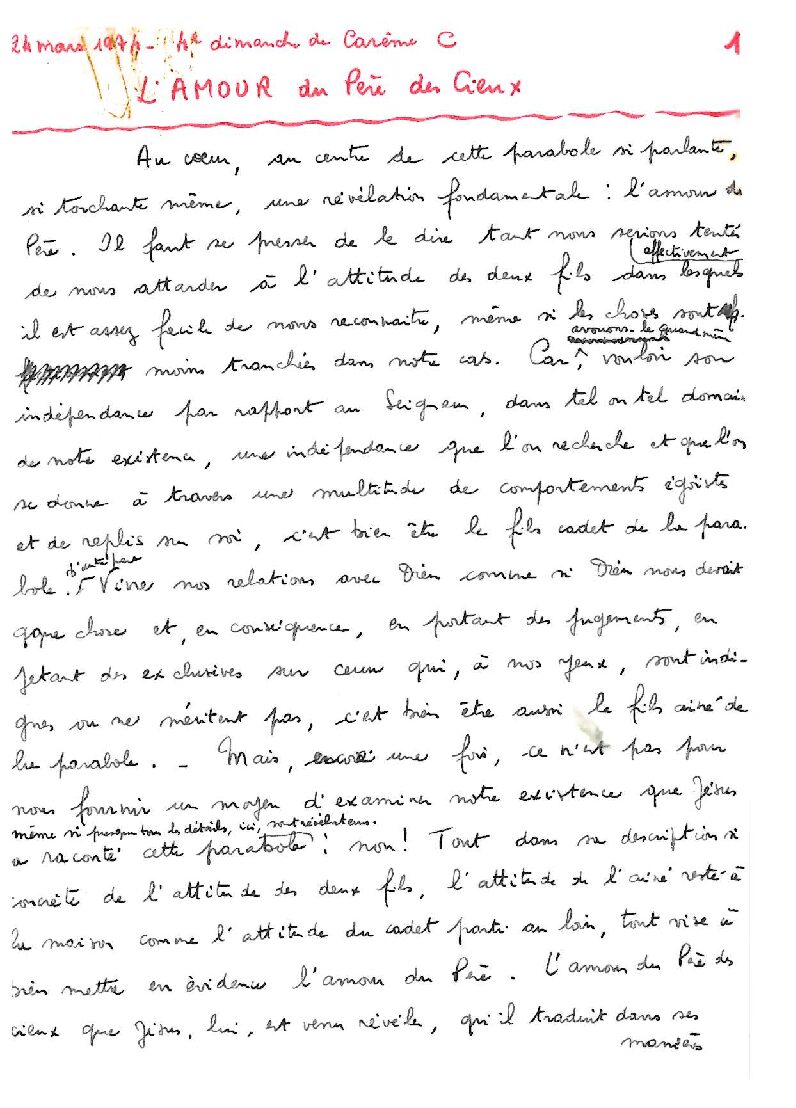 24 mars 1974 - 4e dimanche de Carême C
1
L'AMOUR du Père des Cieux
Au coeur, au centre de cette parabole si parlante,
si touchante même, une révélation fondamentale : l'amour du
Père. Il faut se presser de le dire tant nous serions tentés
effectivement
de nous attarder à l'attitude des deux fils dans lesquels
il est assez facile de nous reconnaître, même si les choses sont
avouons-le quand même
moins tranchées dans notre cas. Car, vouloir son
indépendance par rapport au Seigneur, dans tel ou tel domaine
de notre existence, une indépendance que l'on recherche et que l'on
se donne à travers une multitude de comportements égoïstes
et de replis sur soi, c'est bien être le fils cadet de la para-
d'autre part
bole. Vivre nos relations avec Dieu comme si Dieu nous devait
qque chose et, en conséquence, en portant des jugements, en
jetant des exclusives sur ceux qui, à nos yeux, sont indi-
gnes ou ne méritent pas, c'est bien être aussi le fils aîné de
la parabole. - Mais, encore une fois, ce n'est pas pour
nous fournir un moyen d'examiner notre existence que Jésus
même si presque tous les détails, ici, sont révélateurs.
a raconté cette parabole : non ! Tout dans sa description si
concrète de l'attitude des deux fils, l'attitude de l'aîné resté à
la maison comme l'attitude du cadet parti au loin, tout vise à
bien mettre en évidence l'amour du Père. L'amour du Père des
cieux que Jésus, lui, est venu révéler, qu'il traduit dans ses
manières